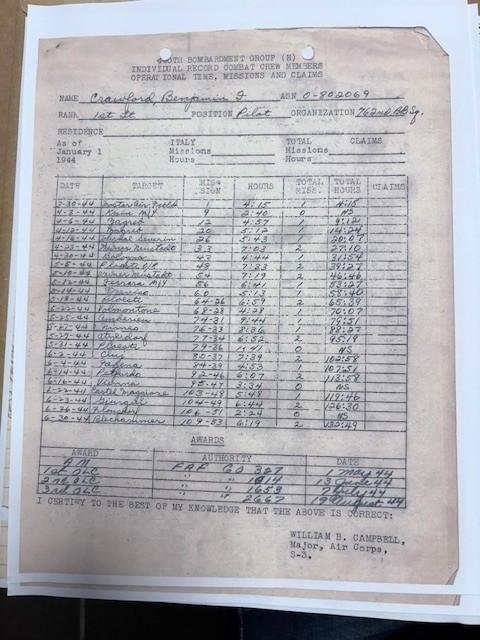 460TH BOMBARDMENT GROUP (H)
INDIVIDUAL RECORD COMBAT CREW MEMBERS
OPERATIONAL TIME, MISSIONS AND CLAIMS
NAME Crawford, Benjamin F ASN O-802069
RANK 1st Lt POSITION Pilot ORGANIZATION 762nd BB Sq.
RESIDENCE
As of ITALY TOTAL CLAIMS
January 1 Missions Missions
1944 Hours Hours
DATE TARGET MISSION HOURS TOTAL MISS. TOTAL HOURS CLAIMS
3-30-44 1 4:15 1 4:15
4-3-44 9 2:40 0 NS
4-6-44 Zagreb 12 4:57 1 9:12
4-12-44 Zagreb 20 5:12 1 14:24
4-16-44 Severin 26 5:43 1 20:07
4-23-44 Neustadt 33 7:03 2 27:10
4-30-44 43 4:44 1 31:54
5-5-44 Ploesti 48 7:33 2 39:27
5-10-44 Neustadt 54 7:19 2 46:46
5-12-44 Ferrara M/Y 56 6:41 1 53:27
5-14-44 Treviso 60 5:13 1 58:40
5-18-44 Ploesti 64-26 6:59 2 65:39
5-22-44 Valmontone 68-28 4:28 1 70:07
5-25-44 Amberieu 74-31 9:44 1
5-27-44 Nimes 76-33 8:36 1 88:27
5-29-44 77-34 6:52 2 95:19
5-31-44 Ploesti 79-36 1:41 0 NS
6-2-44 Cluj 80-37 7:39 2 102:58
6-4-44 84-39 4:53 1 107:51
6-14-44 92-46 6:07 2 113:58
6-16-44 Vienna 95-47 3:34 0 NS
6-22-44 Castel Maggiore 103-48 5:48 1 119:46
6-23-44 Giurgiu 104-49 6:44 2 126:30
6-26-44 106-51 2:24 0 NS
6-30-44 Blechhammer 109-53 6:19 2 132:49
AWARDS
AWARD AUTHORITY DATE
A M FAF GO 387 1 May 44
1st OLC " " 1014 13 June 44
2nd OLC " " 1653 7 July 44
3rd OLC " " 2667 19 August 44
I CERTIFY TO THE BEST OF MY KNOWLEDGE THAT THE ABOVE IS CORRECT:
WILLIAM B. CAMPBELL,
Major, Air Corps,
S-3.